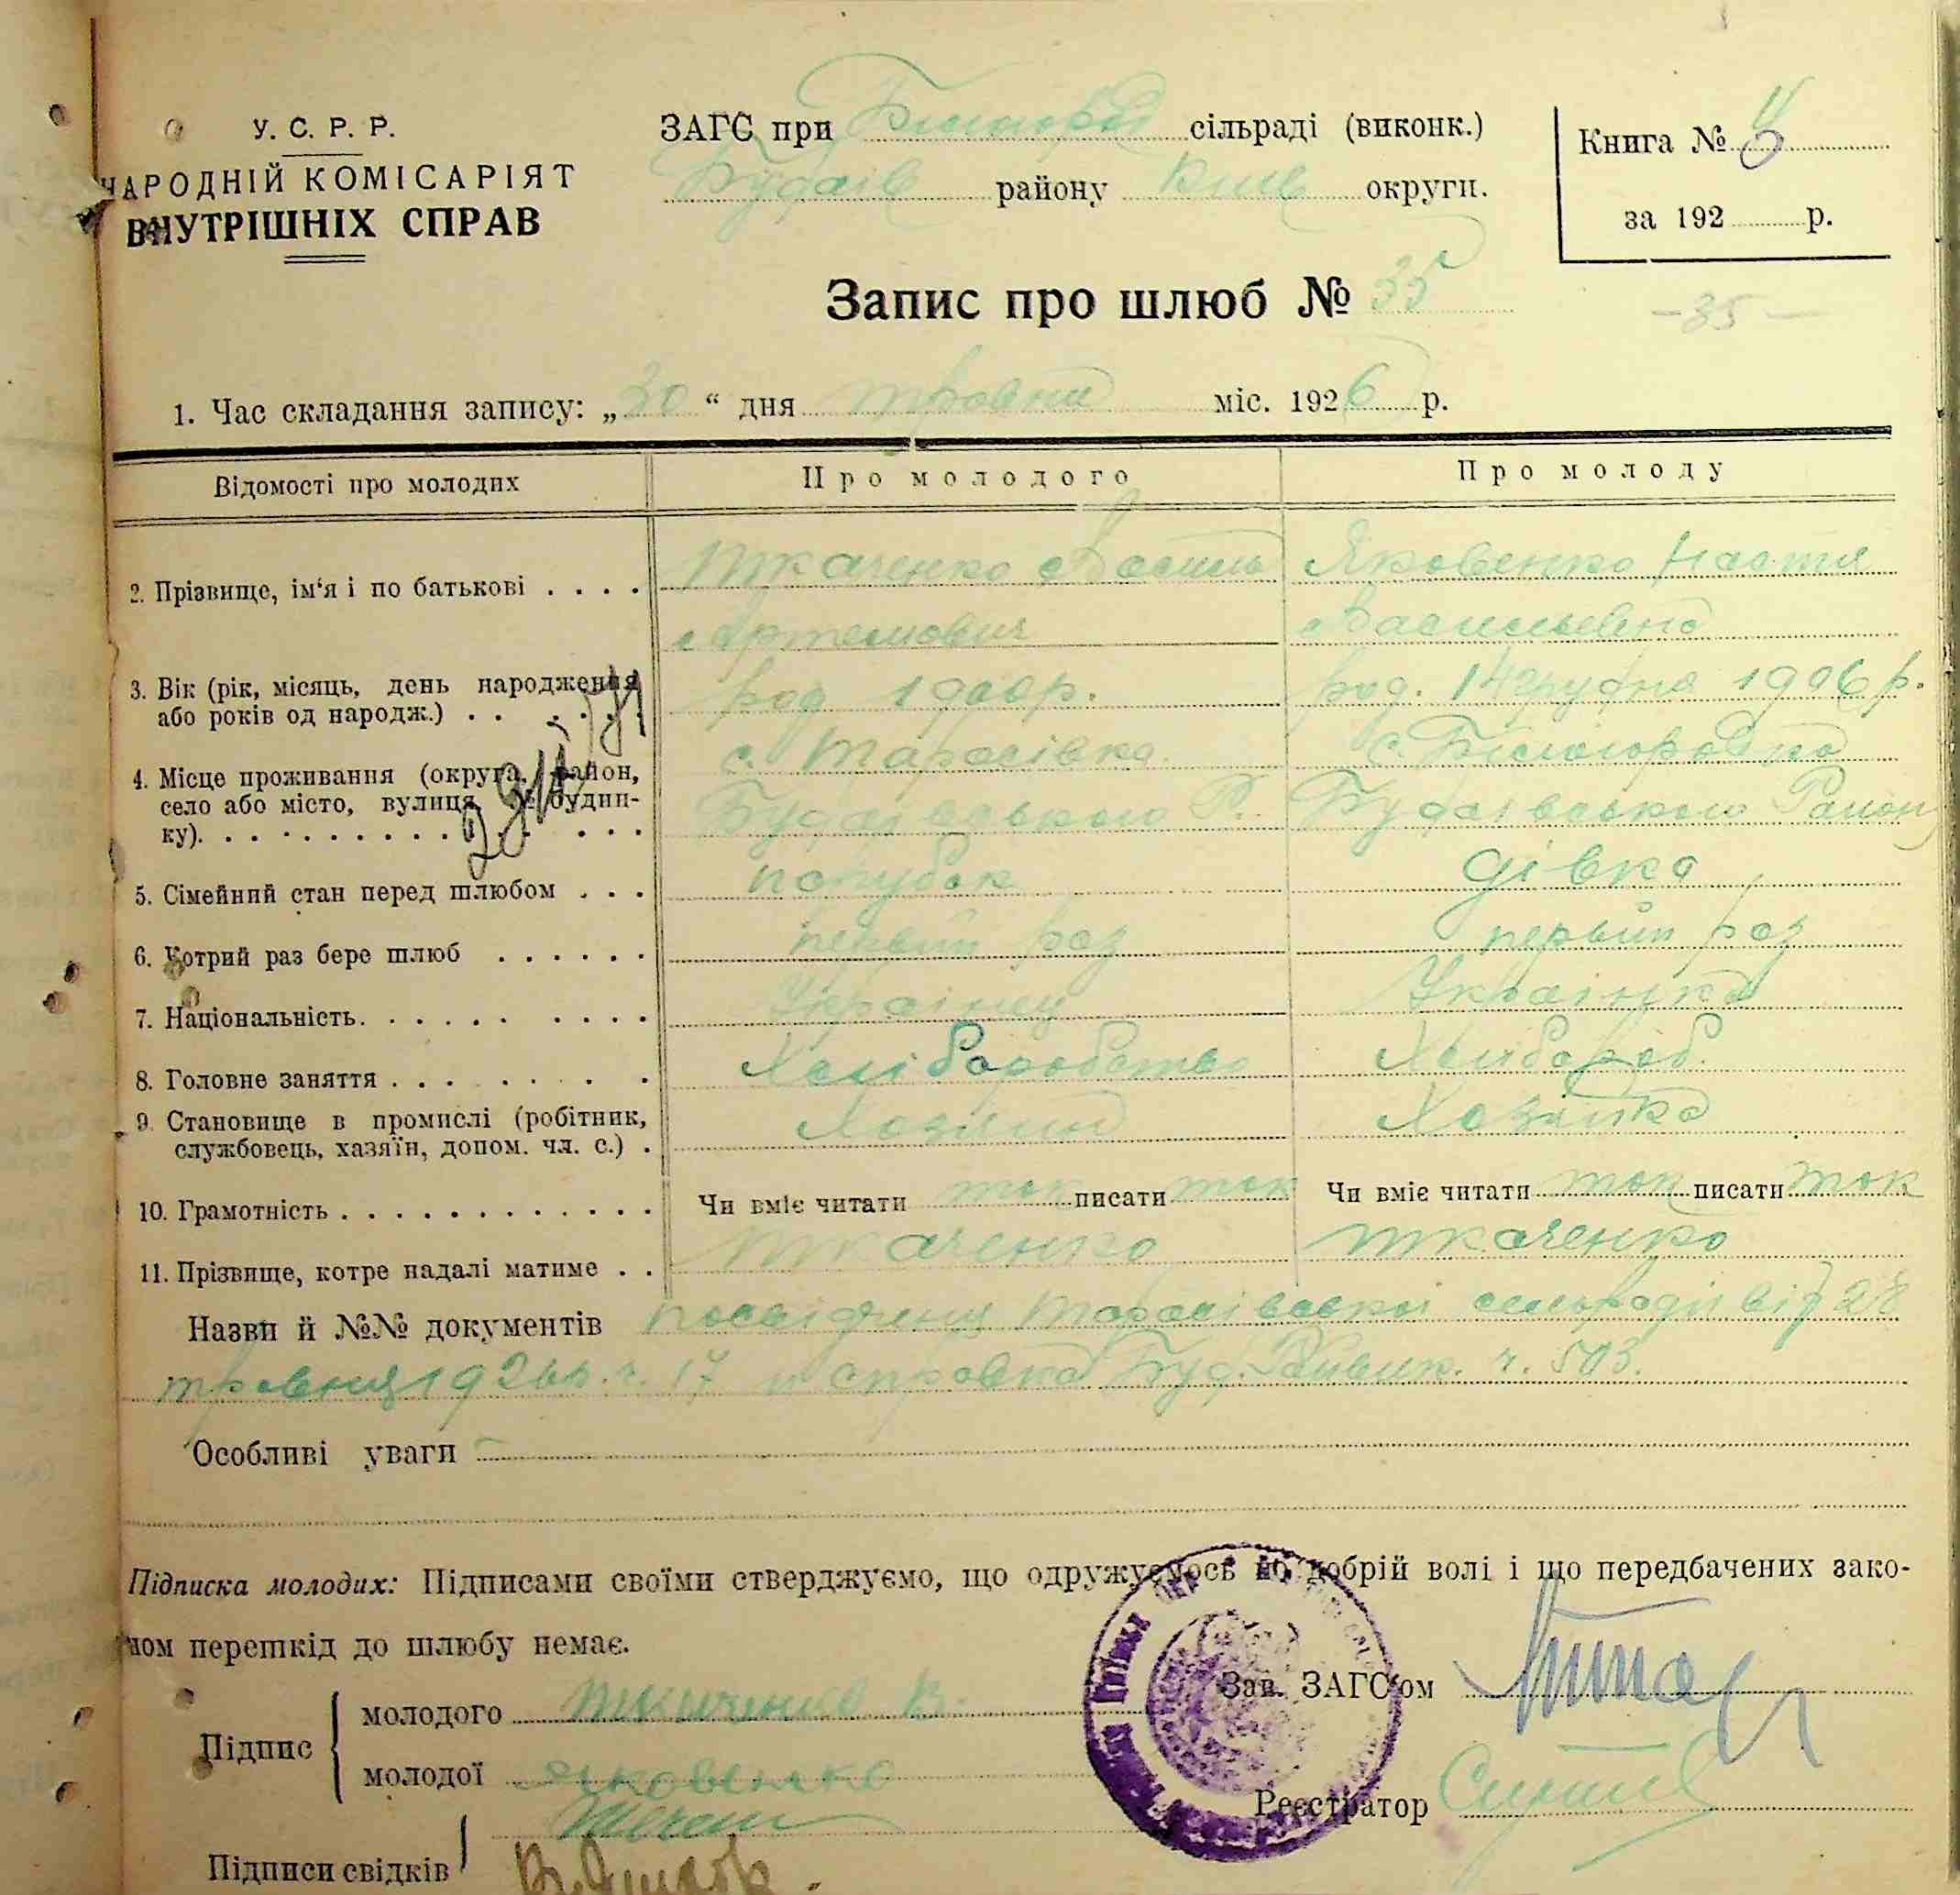 У. С. Р. Р.
НАРОДНІЙ КОМІСАРІЯТ
ВНУТРІШНІХ СПРАВ
ЗАГС при сільраді (виконк.)
Будаїв району Київ округи.
Книга № 4
за 192 р.
Запис про шлюб № 35
- 35 -
1. Час складання запису: „30“ дня травня міс. 1926 р.
Відомості про молодих
Про молодого
Про молоду
2. Прізвище, ім‘я і по батькові . . . .
Ткаченко Василь
Артемович
Яковенко Настя
Васильевна
3. Вік (рік, місяць, день народження
або років од народж.) . . . . . .
род 1900р.
род. 14 грудня 1906 р.
4. Місце проживання (округа, район,
село або місто, вулиця, № будин-
ку). . . . . . . . . . . . . . .
с. Тарасівка
Будаівського Р.
с. Білогородка
Будаівського Району
5. Сімейний стан перед шлюбом . . .
парубок
дівка
6. Котрий раз бере шлюб . . . . . .
первий раз
первий раз
7. Національність. . . . . . . . . .
Українец
Українка
8. Головне заняття . . . . . . . .
Хліборобство
Хлібороб.
9. Становище в промислі (робітник,
службовець, хазяїн, допом. чл. с.) .
Хозяин
Хозяйка
10. Грамотність . . . . . . . . . . . .
Чи вміє читати так писати так
Чи вміє читати так писати так
11. Прізвище, котре надалі матиме . .
Ткаченко
Ткаченко
Назви й №№ документів посвідченя Тарасівської сельради від 28
травня 1926р. ч. 17 и справка Буд. Райвик. ч. 503.
Особливі уваги -
Підписка молодих: Підписами своїми стверджуємо, що одружуємось по добрій волі і що передбачених зако-
ном перешкід до шлюбу немає.
Підпис
молодого Ткаченко В.
молодої Яковенко
Зав. ЗАГС‘ом
Реєстратор
Підписи свідків